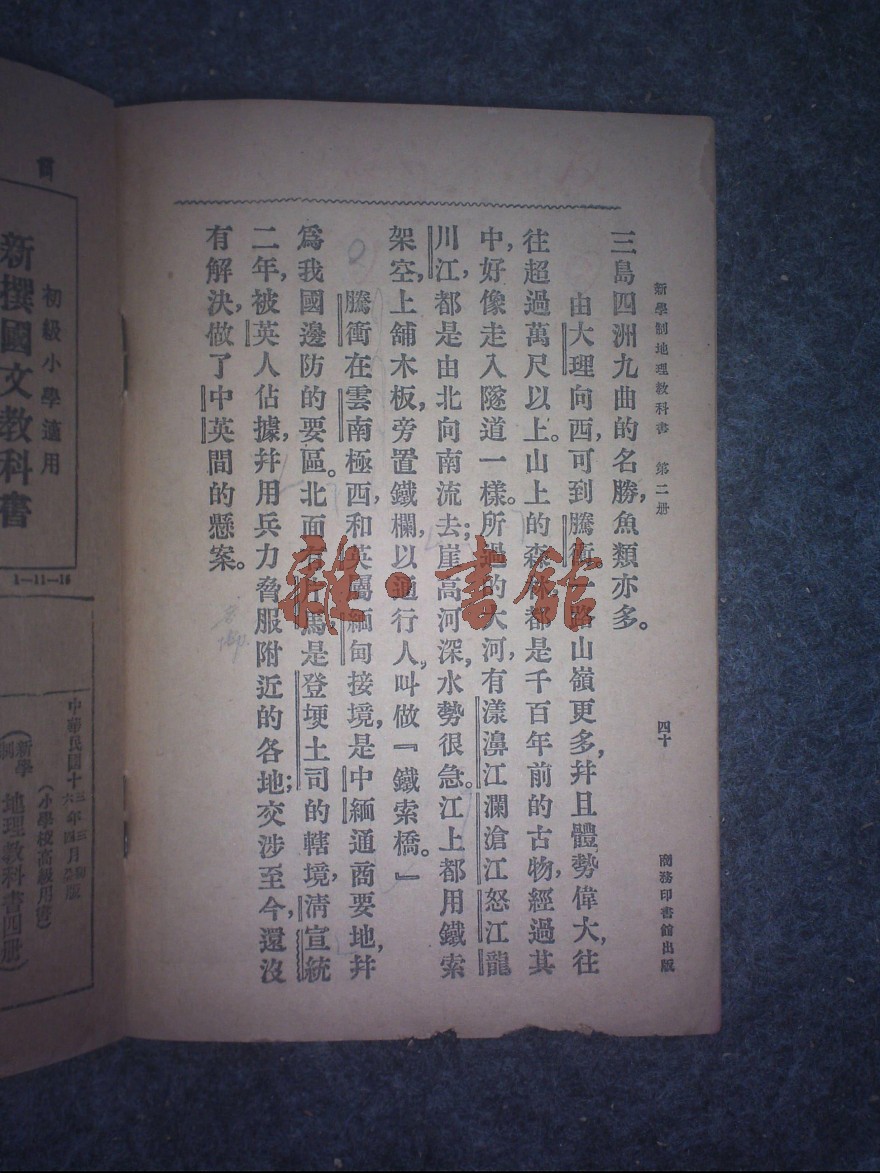 新學制地理教科書 第二册
四十
商務印書館出版
三島四洲九曲的名勝,魚類亦多。
由大理向西,可到騰衝一路山嶺更多,幷且體勢偉大,往
往超過萬尺以上。山上的森林,都是千百年前的古物,經過其
中,好像走入隧道一樣。所過的大河,有漾濞江瀾滄江怒江龍
川江,都是由北向南流去;崖高河深,水勢很急。江上都用鐵索
架空,上舖木板,旁置鐵欄,以通行人,叫做『鐵索橋。』
騰衝在雲南極西,和英屬緬甸接境,是中緬通商要地,幷
爲我國邊防的要區。北面有片馬,是登埂土司的轄境,淸宣統
二年,被英人佔據,幷用兵力脅服附近的各地;交涉至今,還沒
有解決,做了中英間的懸案。
雜·書館
初級小學適用
新撰國文教科書
1—11—16
中華民國十
三年三
六年四月
版
(小學校高級用書)
(新學制 地理教科書四册)